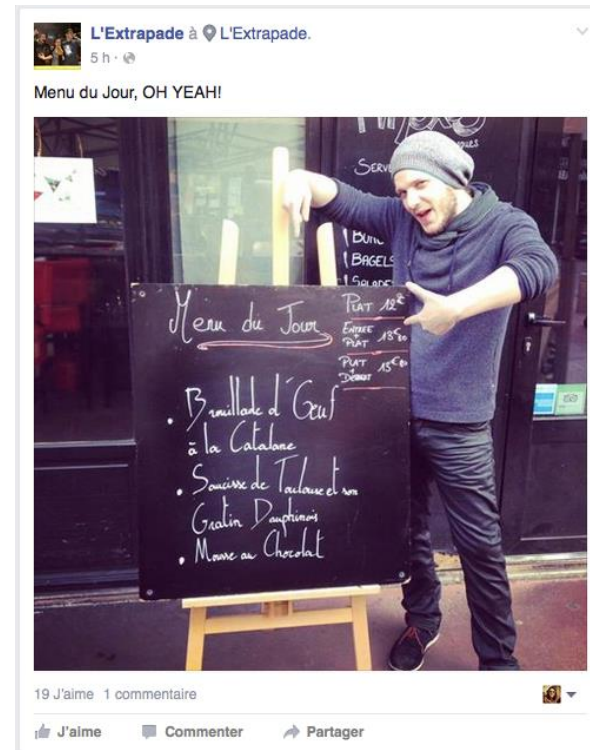 L'Extrapade à L'Extrapade.
5 h
Menu du Jour, OH YEAH!
SERV
BAGELS
Menu du Jour
PLAT 12€
ENTREE + PLAT 13€80
PLAT + DESSERT 15€80
• Brouillade d'Œuf
à la Catalane
• Saucisse de Toulouse et son
Gratin Dauphinois
• Mousse au Chocolat
19 J'aime 1 commentaire
J'aime Commenter Partager